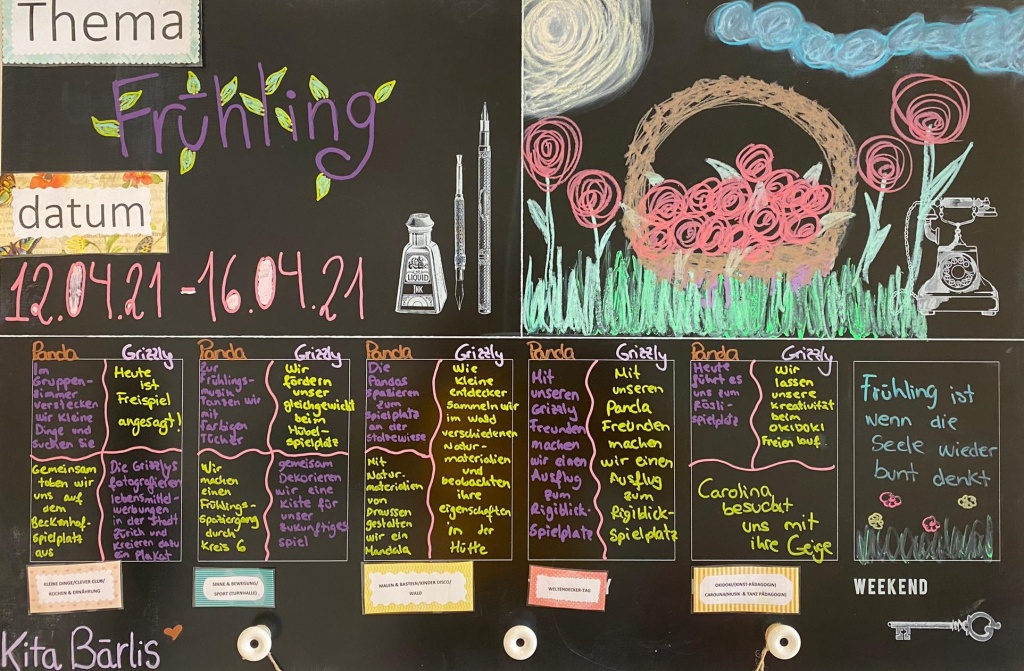 Thema
Frühling
datum
12.04.21 - 16.04.21
LIQUID
INK
Panda
Im
Gruppen-
zimmer
verstecken
wir kleine
Dinge und
suchen sie
Grizzly
Heute
ist
Freispiel
angesagt!
Gemeinsam
toben wir
uns auf
dem
Beckenhof-
Spielplatz
aus
Die Grizzlys
fotografieren
lebensmittel-
werbungen
in der Stadt
Zürich und
Kreieren dazu
ein Plakat
Panda
Zur
Frühlings-
musik
Tanzen wir
mit
farbigen
Tücher
Grizzly
Wir
fördern
unser
gleichgewicht
beim
Hübel-
spielplatz
Wir
machen
einen
Frühlings-
Spaziergang
durch
Kreis 6
gemeisam
Dekorieren
wir eine
Kiste für
unser
zukünftiges
spiel
Panda
Die
Pandas
spazieren
zum
spielplatz
an der
stolzewiese
Mit
Natur-
materialien
von
Draussen
gestalten
wir ein
Mandala
Grizzly
Wie
kleine
entdecker
Sammeln wir
im Wald
verschiedenen
Natur-
materialien
und
beobachten
ihre
eigenschaften
in der
Hütte
Panda
Mit
unseren
Grizzly
Freunden
machen
wir einen
Ausflug
zum
Rigiblick-
Spielplatz
Grizzly
Mit
unseren
Panda
Freunden
machen
wir einen
Ausflug
zum
Rigiblick-
Spielplatz
Panda
Heute
führt es
uns zum
Rösli-
spielplatz
Grizzly
Wir
lassen
unsere
Kreativitzt
beim
OKIDOKI
Freien lauf.
Carolina
besucht
uns mit
ihre Geige
Frühling ist
wenn die
Seele wieder
bunt denkt
KLEINE DINGE/CLEVER CLUB/
KOCHEN & ERNÄHRUNG
SINNE & BEWEGUNG/
SPORT (TURNHALLE)
MALEN & BASTELN/KINDER DISCO/
WALD
WELTENDECKER-TAG
OKIDOKI(KUNST-PÄDAGOGIN)
CAROLINA(MUSIK & TANZ PÄDAGOGIN)
WEEKEND
Kita Bärlis